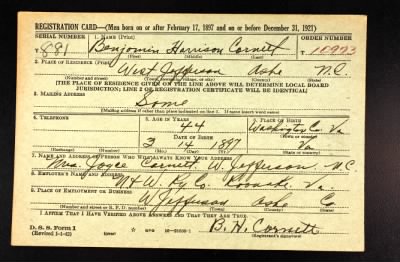 REGISTRATION CARD—(Men born on or after February 17, 1897 and on or before December 31, 1921)
SERIAL NUMBER 1. NAME (Print) ORDER NUMBER
T 881 Benjamin Harrison Cornett 10993
(First) (Middle) (Last)
2. PLACE OF RESIDENCE (Print)
West Jefferson Ashe N.C.
(Number and street) (Town, township, village, or city) (County) (State)
[THE PLACE OF RESIDENCE GIVEN ON THE LINE ABOVE WILL DETERMINE LOCAL BOARD
JURISDICTION; LINE 2 OF REGISTRATION CERTIFICATE WILL BE IDENTICAL]
3. MAILING ADDRESS
Same
[Mailing address if other than place indicated on line 2. If same insert word same]
4. TELEPHONE 5. AGE IN YEARS 6. PLACE OF BIRTH
44 Washington Co. Va
DATE OF BIRTH (Town or county)
3 14 1897 Va
(Exchange) (Number) (Mo.) (Day) (Yr.) (State or country)
7. NAME AND ADDRESS OF PERSON WHO WILL ALWAYS KNOW YOUR ADDRESS
Mrs. Joyce Cornett W. Jefferson N.C
8. EMPLOYER'S NAME AND ADDRESS
N & W. Ry Co. Roanoke, Va.
9. PLACE OF EMPLOYMENT OR BUSINESS
W. Jefferson Ashe C
(Number and street or R. F. D. number) (Town) (County) (State)
I AFFIRM THAT I HAVE VERIFIED ABOVE ANSWERS AND THAT THEY ARE TRUE.
D. S. S. Form 1
(Revised 1-1-42) (over) ☆ GPO B. H. Cornett
(Registrant's signature)